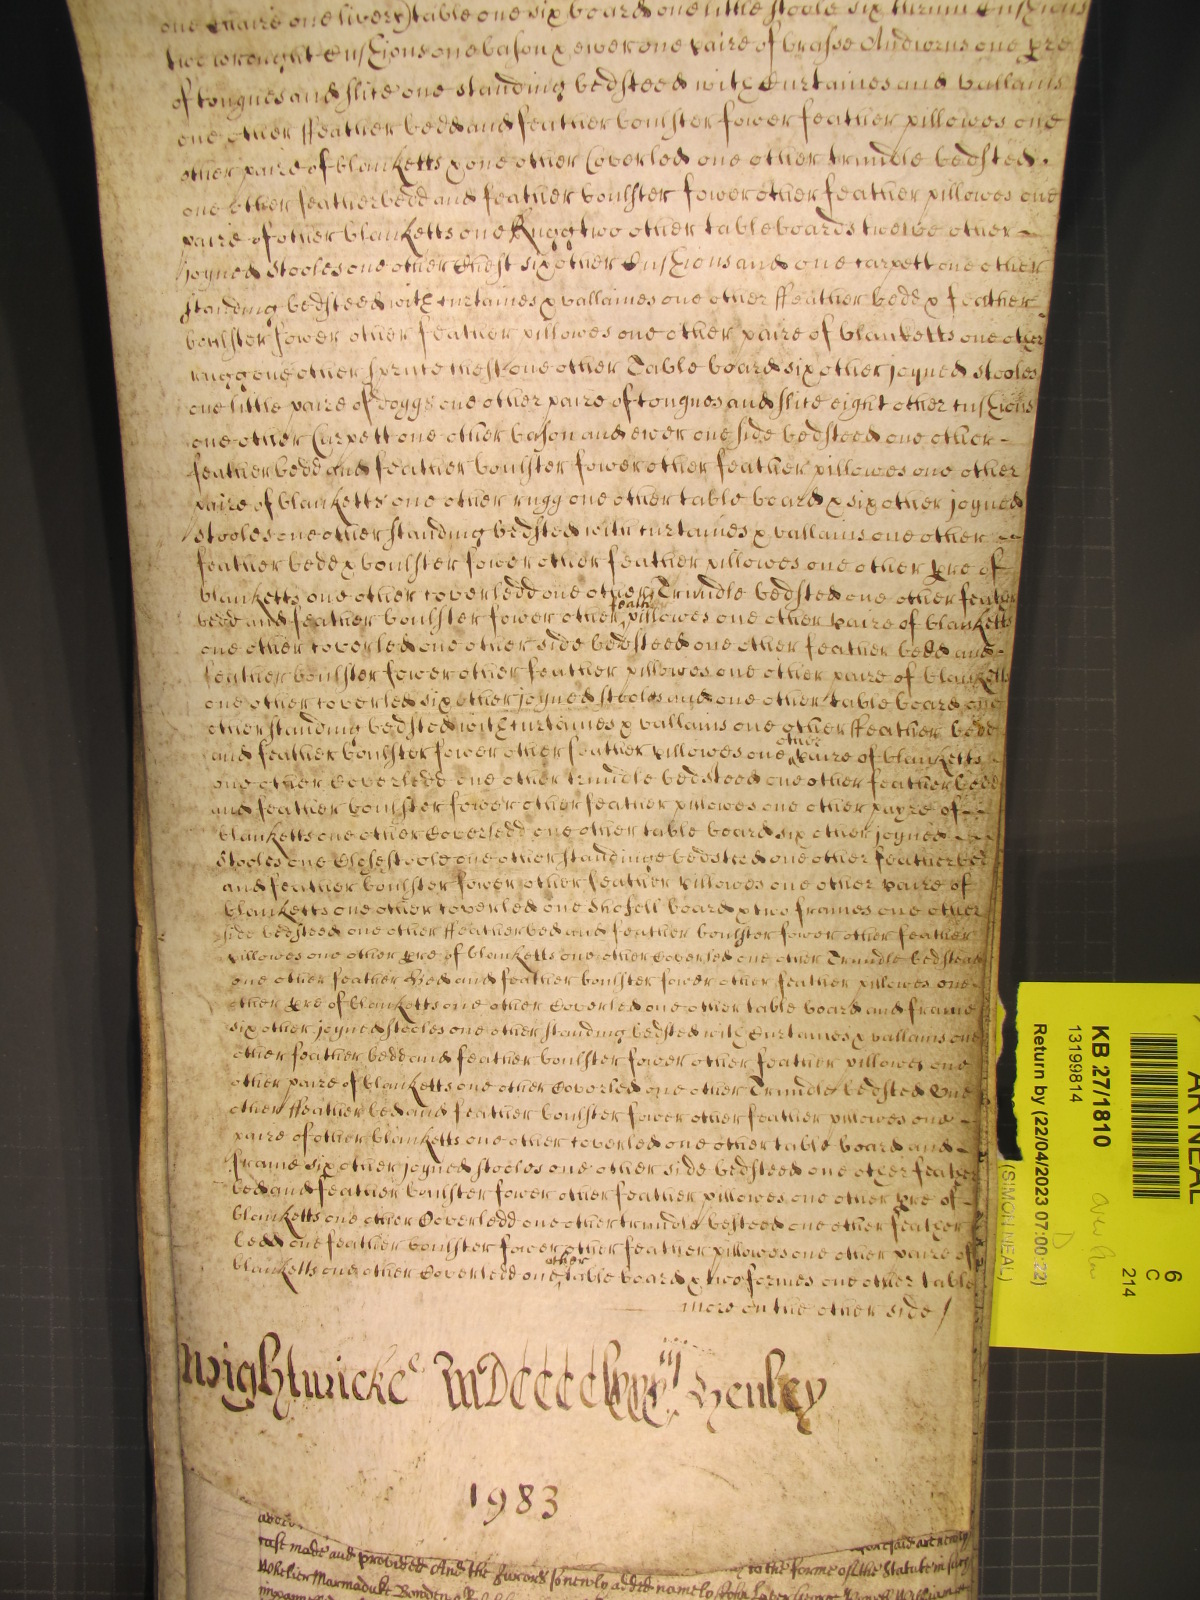 one paire one livery table one six board one little stoole six turun Cushions
two wrought Cushions one bason & ewer one paire of brasse Andirons one pre
of tongues and slice one standing bedsteed with Curtaines and vallains
one other ffeather bedd and feather boulster fower feather pillowes one
other paire of blanketts & one other Coverled one other trundle bedsted
one other featherbedd and feather boulster fower other feather pillowes one
paire of other blanketts one Rugg two other tableboards twelve other
joyned stooles one other Chest six other Cushions and one carpett one other
standing bedsteed with curtaines & vallaines one other ffeather bedd & feather
boulster fower other feather pillowes one other paire of blanketts one other
rugg one other spruce chest one other Table board six other joyned stooles
one little paire of doggs one other paire of tongues and slice eight other cushions
one other Carpett one other bason and ewer one side bedsteed one other
featherbedd and feather boulster fower other feather pillowes one other
paire of blanketts one other rugg one other table board & six other joyned
stooles one other standing bedsted with curtaines & vallains one other
feather bedd & boulster fower other feather pillowes one other pre of
blanketts one other coverledd one other Trundle bedsted one other feather
bedd and feather boulster fower other feather pillowes one other paire of blanketts
one other coverled one other side bedsteed one other feather bedd and
feather boulster fower other feather pillowes one other paire of blanketts
one other coverled six other joyned stooles and one other table board one
other standing bedsted with curtaines & vallains one other ffeather bedd
and feather boulster fower other feather pillowes one other paire of blanketts
one other Coverledd one other trundle bedsteed one other feather bedd
and feather boulster fower other feather pillowes one other payre of
blanketts one other Coverledd one other table board six other joyned
stooles one Closestoole one other standinge bedsteed one other featherbed
and feather boulster fower other feather pillowes one other paire of
blanketts one other coverled one Shofell board & two frames one other
side bedsteed one other ffeatherbed and feather boulster fower other feather
pillowes one other pre of blanketts one other Coverled one other Trundle bedsteed
one other feather Bed and feather boulster fower other feather pillowes one
other pre of blanketts one other Coverled one other table board and frame
six other joyned stooles one other standing bedsted with Curtaines & vallains one
other feather bedd and feather boulster fower other feather pillowes one
other paire of blanketts one other Coverled one other Trundle bedsted One
other ffeather bed and feather boulster fower other feather pillowes one
paire of other blanketts one other coverled one other table board and
frame six other joyned stooles one other side bedsteed one other feather
bed and feather boulster fower other feather pillowes one other pre of
blanketts one other Coverledd one other trundle besteed one other feather
bedd one feather boulster fower other feather pillowes one other paire of
blanketts one other Coverledd one other table board & two formes one other table
more on the other side /
Wightwicke Henley
1983
cast made and provided And the Jurors so newly added namely John to the forme of the Statute in
Marmaduke
AR NEAL
6
C
214
KB 27/1810
13199814
Return by (22/04/2023 07:00:22)
(SIMON NEAL)